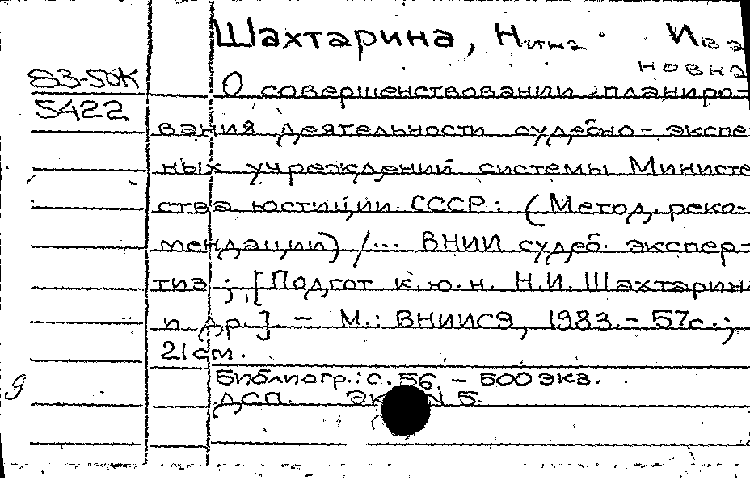 Шахтарина, Нина Ива
новна
83-5ДК
5422
О совершенствовании планиро-
вания деятельности судебно-экспе
ных учреждений системы Министе
ства юстиции СССР: (Метод. реко-
мендации) /... ВНИИ судеб. экспер-
тиз ; [Подгот к.ю.н. Н.И. Шахтарин
и др.] - М.: ВНИИСЭ, 1983. - 57с.;
21см.
Библиогр.: с. 56. - 500 экз.
ДСП. N 5.